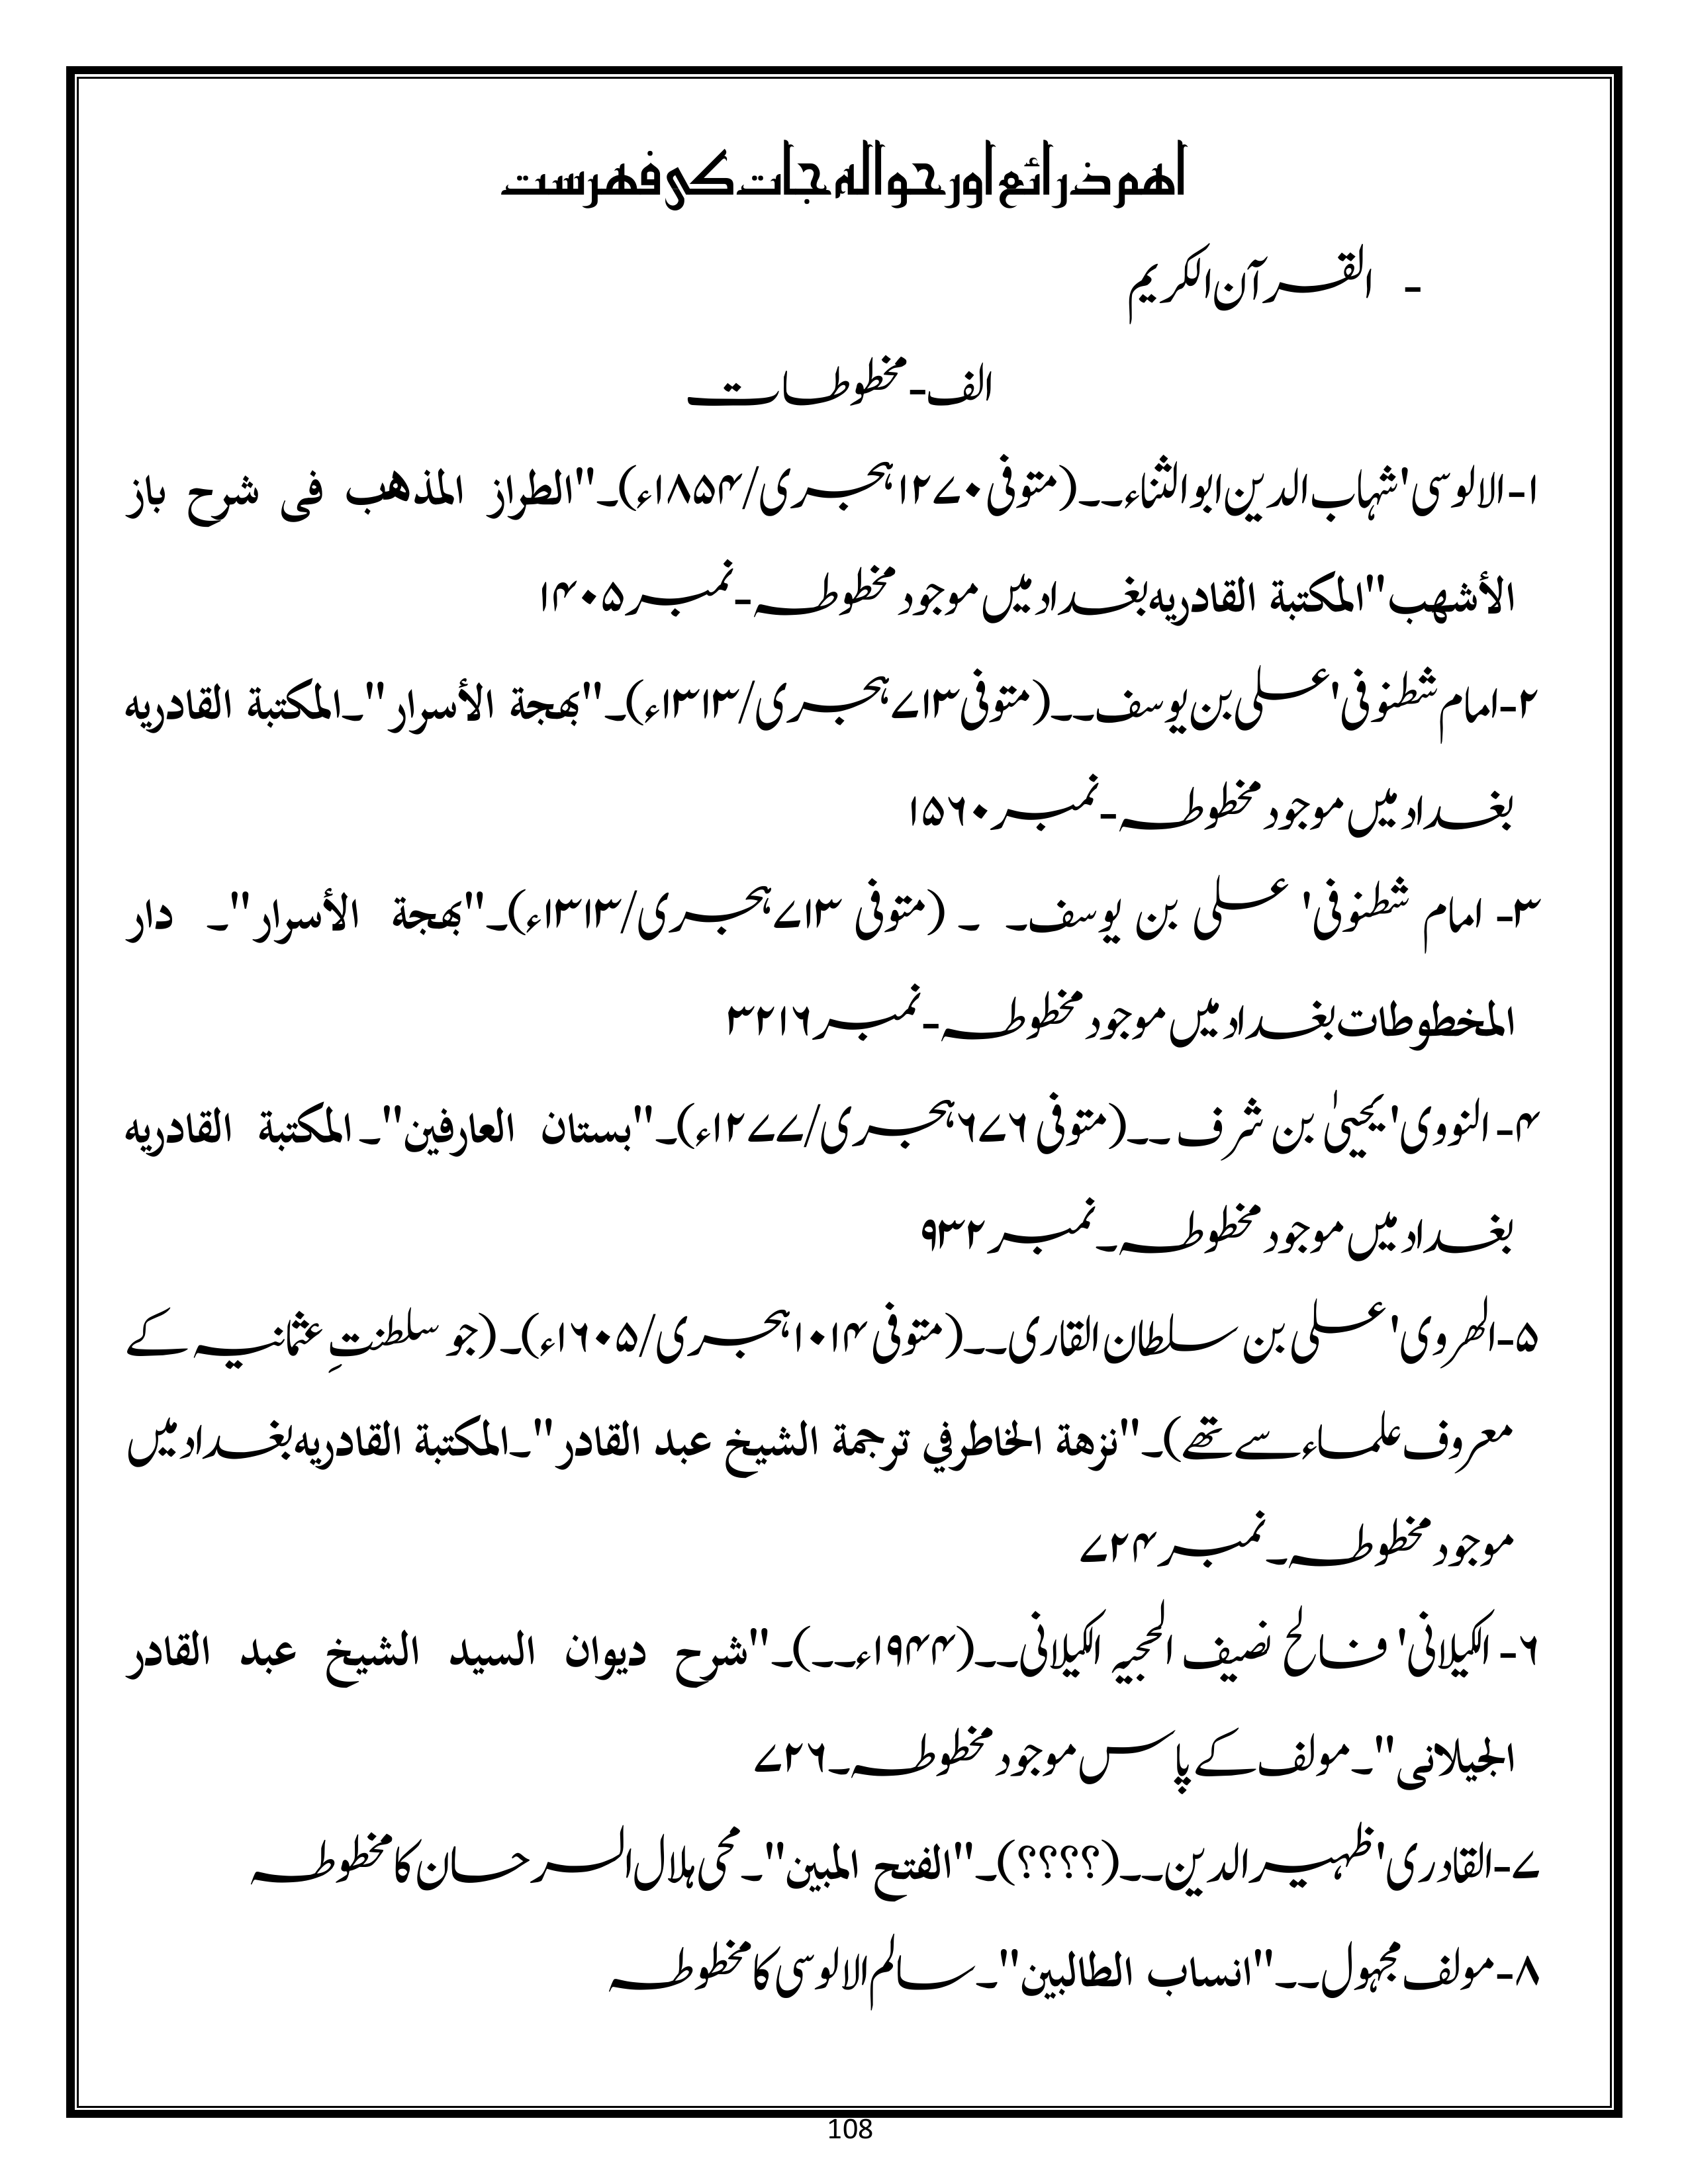 اھم ذرائع اور حوالہ جات کی فھرست
- القرآن الکریم
الف-مخطوطات
۱-الالوسی'شہاب الدین ابو الثناء۔۔(متوفی ۱۲۷۰ہجری/۱۸۵۴ء)۔"الطراز المذهب فی شرح باز
الأشهب"المکتبة القادریه بغداد میں موجود مخطوطہ-نمبر ۱۴۰۵
۲-امام شطنوفی'علی بن یوسف۔۔(متوفی ۷۱۳ہجری/۱۳۱۳ء)۔"بهجة الأسرار"۔المکتبة القادریه
بغداد میں موجود مخطوطہ-نمبر ۱۵۶۰
۳- امام شطنوفی' علی بن یوسف۔ ۔ (متوفی ۷۱۳ہجری/۱۳۱۳ء)۔"بهجة الأسرار"۔ دار
المخطوطات بغداد میں موجود مخطوطہ-نمبر ۳۲۱۶
۴-النووی'یحییٰ بن شرف ۔۔(متوفی ۶۷۶ہجری/۱۲۷۷ء)۔"بستان العارفین"۔المکتبة القادریه
بغداد میں موجود مخطوطہ۔نمبر ۹۳۲
۵-الھروی'علی بن سلطان القاری۔۔(متوفی ۱۰۱۴ہجری/۱۶۰۵ء)۔(جو سلطنتِ عثمانیہ کے
معروف علماء سے تھے)۔"نزهة الخاطرفي ترجمة الشیخ عبد القادر"۔المکتبة القادریه بغداد میں
موجود مخطوطہ۔نمبر ۷۲۴
۶-الکیلانی' فالح نصیف الحجیہ الکیلانی۔۔(۱۹۴۴ء۔۔)۔"شرح دیوان السید الشیخ عبد القادر
الجیلانی"۔مولف کے پاس موجود مخطوطہ۔۷۲۶
۷-القادری'ظہیر الدین۔۔(؟؟؟؟)۔"الفتح المبین"۔محی ہلال السرحان کا مخطوطہ
۸-مولف مجہول۔۔"انساب الطالبین"۔سالم الالوسی کا مخطوطہ
108